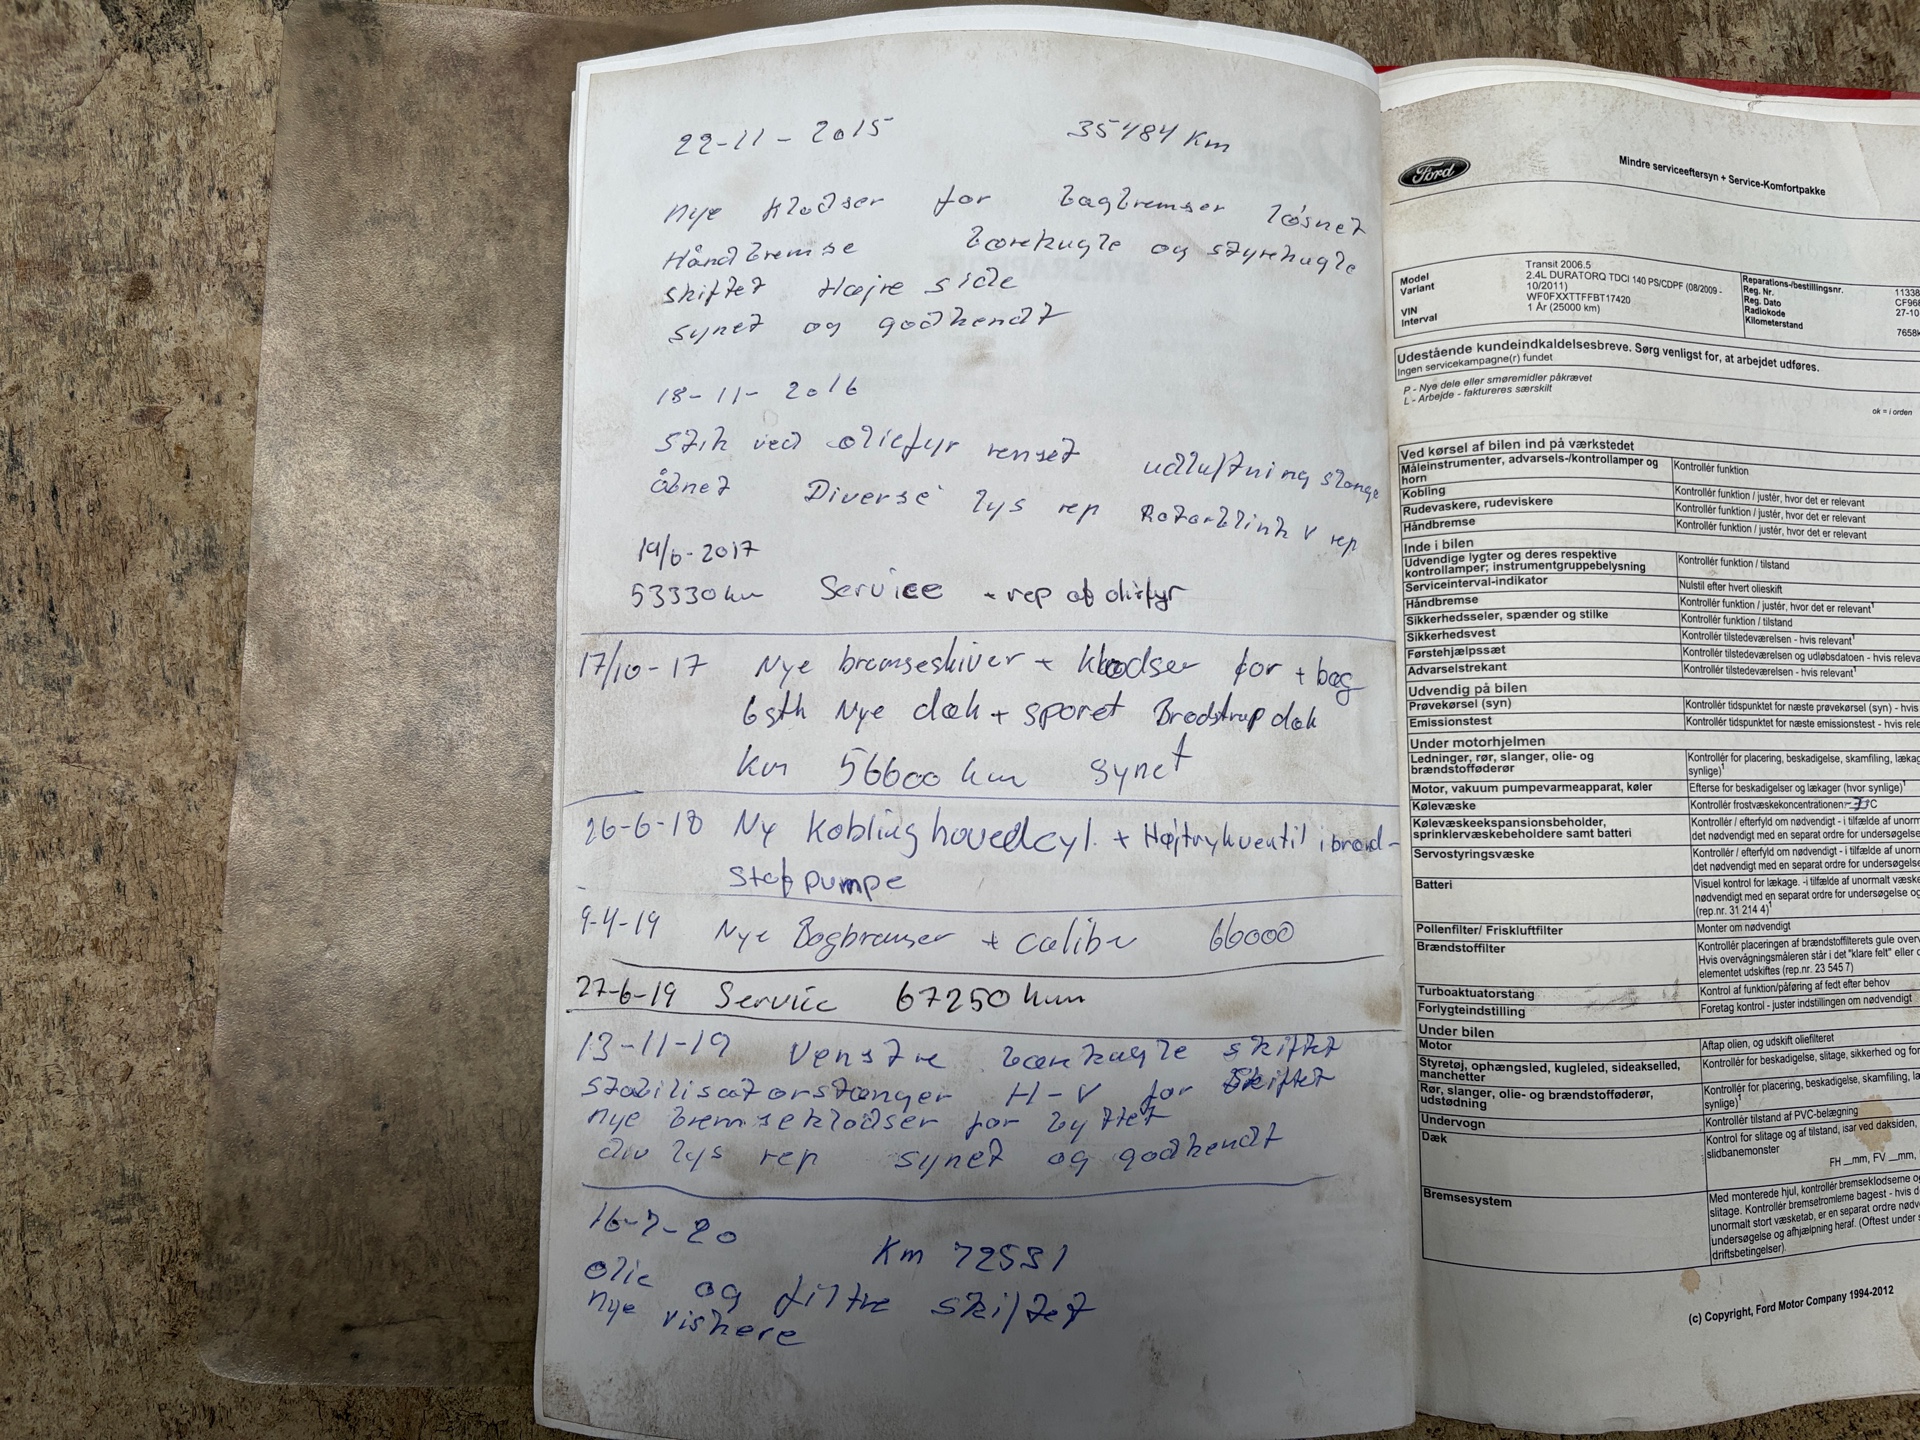 22-11-2015 35484 Km
Nye klodser for bagbremser løsnet
Håndbremse bærekugle og styrekugle
skiftet Højre side
synet og godkendt
18-11-2016
Stik ved oliefyr renset udluftning slange
åbnet Diverse lys rep Rotorblink V rep
19/6-2017
53330 km Service + rep af oliefyr
17/10-17 Nye bremseskiver + klodser for + bag
6 stk Nye dæk + sporet Brødstrup dæk
km 56600 km Synet
26-6-18 Ny Kobling hovedcyl. + Højtrykventil i brænd-
stof pumpe
9-4-19 Nye Bagbremser + calibre 66000
27-6-19 Service 67250 km
13-11-19 Venstre bærekugle skiftet
stabilisatorstænger H-V for skiftet
nye bremseklodser for byttet
div lys rep synet og godkendt
16-7-20
Km 72531
olie og filtre skiftet
nye viskere
Ford
Mindre serviceeftersyn + Service-Komfortpakke
Model Transit 2006.5 Reparations-/bestillingsnr. 11338
Variant 2.4L DURATORQ TDCI 140 PS/CDPF (08/2009 - Reg. Nr. CF968
10/2011) Reg. Dato 27-10
VIN WF0FXXTTFFBT17420 Radiokode
Interval 1 År (25000 km) Kilometerstand 7658
Udestående kundeindkaldelsesbreve. Sørg venligst for, at arbejdet udføres.
Ingen servicekampagne(r) fundet
P - Nye dele eller smøremidler påkrævet
L - Arbejde - faktureres særskilt
ok = i orden
Ved kørsel af bilen ind på værkstedet
Måleinstrumenter, advarsels-/kontrollamper og Kontrollér funktion
horn
Kobling Kontrollér funktion / justér, hvor det er relevant
Rudevaskere, rudeviskere Kontrollér funktion / justér, hvor det er relevant
Håndbremse Kontrollér funktion / justér, hvor det er relevant
Inde i bilen
Udvendige lygter og deres respektive Kontrollér funktion / tilstand
kontrollamper; instrumentgruppebelysning
Serviceinterval-indikator Nulstil efter hvert olieskift
Håndbremse Kontrollér funktion / justér, hvor det er relevant¹
Sikkerhedsseler, spænder og stilke Kontrollér funktion / tilstand
Sikkerhedsvest Kontrollér tilstedeværelsen - hvis relevant¹
Førstehjælpssæt Kontrollér tilstedeværelsen og udløbsdatoen - hvis releva
Advarselstrekant Kontrollér tilstedeværelsen - hvis relevant¹
Udvendig på bilen
Prøvekørsel (syn) Kontrollér tidspunktet for næste prøvekørsel (syn) - hvis
Emissionstest Kontrollér tidspunktet for næste emissionstest - hvis rele
Under motorhjelmen
Ledninger, rør, slanger, olie- og Kontrollér for placering, beskadigelse, skamfiling, lækag
brændstofføderør synlige)¹
Motor, vakuum pumpevarmeapparat, køler Efterse for beskadigelser og lækager (hvor synlige)¹
Kølevæske Kontrollér frostvæskekoncentrationen °C
Kølevæskeekspansionsbeholder, Kontrollér / efterfyld om nødvendigt - i tilfælde af unorm
sprinklervæskebeholdere samt batteri det nødvendigt med en separat ordre for undersøgelse
Servostyringsvæske Kontrollér / efterfyld om nødvendigt - i tilfælde af unorm
det nødvendigt med en separat ordre for undersøgelse
Batteri Visuel kontrol for lækage. -i tilfælde af unormalt væske
nødvendigt med en separat ordre for undersøgelse og
(rep.nr. 31 214 4)¹
Pollenfilter/ Friskluftfilter Monter om nødvendigt
Brændstoffilter Kontrollér placeringen af brændstoffilterets gule overv
Hvis overvågningsmåleren står i det "klare felt" eller
elementet udskiftes (rep.nr. 23 545 7)
Turboaktuatorstang Kontrol af funktion/påføring af fedt efter behov
Forlygteindstilling Foretag kontrol - juster indstillingen om nødvendigt
Under bilen
Motor Aftap olien, og udskift oliefilteret
Styretøj, ophængsled, kugleled, sideakselled, Kontrollér for beskadigelse, slitage, sikkerhed og for
manchetter
Rør, slanger, olie- og brændstofføderør, Kontrollér for placering, beskadigelse, skamfiling, læ
udstødning synlige)¹
Undervogn Kontrollér tilstand af PVC-belægning
Dæk Kontrol for slitage og af tilstand, isar ved daksiden,
slidbanemonster
FH __mm, FV __mm,
Bremsesystem Med monterede hjul, kontrollér bremseklodserne og
slitage. Kontrollér bremsetromlerne bagest - hvis d
unormalt stort væsketab, er en separat ordre nødv
undersøgelse og afhjælpning heraf. (Oftest under s
driftsbetingelser).
(c) Copyright, Ford Motor Company 1994-2012